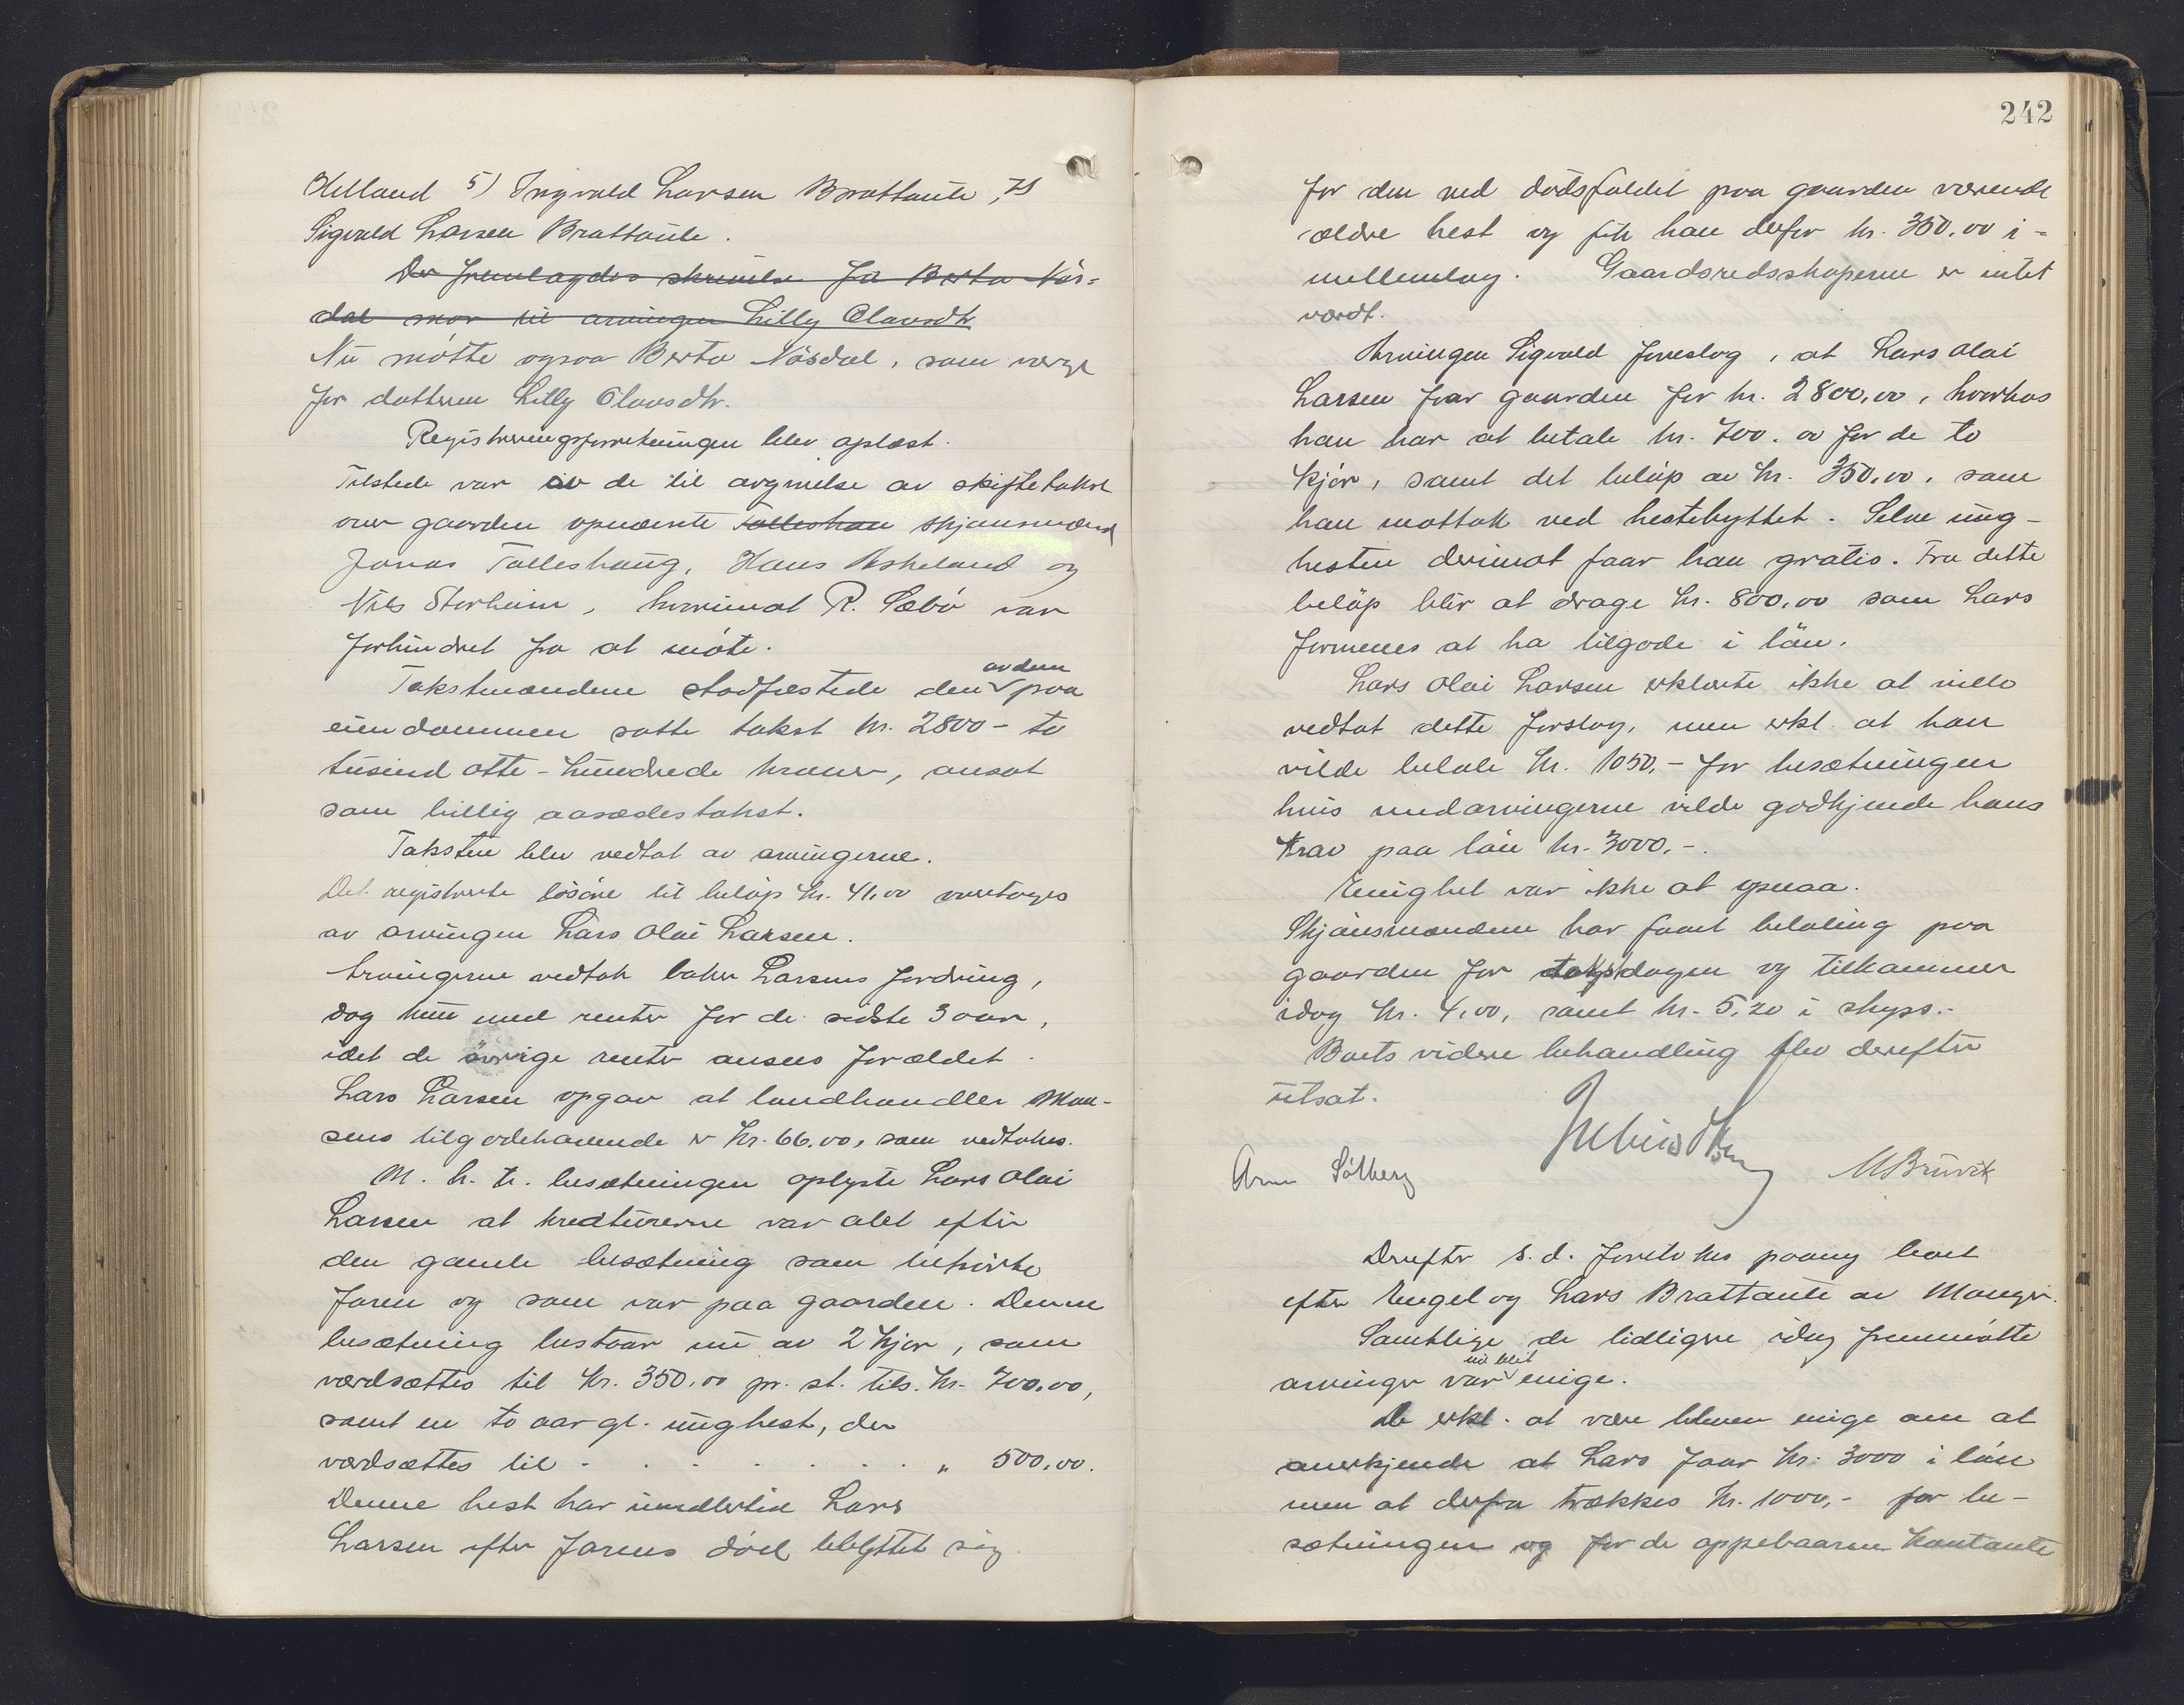 Helland 5) Ingvald Larsen Brattaule, 7)
Sigvald Larsen Brattaule.
Der fremlagdes skrivelse fra Berta Nös-
dal mor til arvingen Lilly Olavsdtr
Nu møtte ogsaa Berta Nösdal, som verge
for datteren Lilly Olavsdtr.
Registreringsforretningen blev oplæst.
Tilstede var av de til avgivelse av skiftetakst
over gaarden opnævnte Talleshau skjønsmænd
Jonas Talleshaug, Hans Askeland og
Nils Storheim, hvorimot R. Sæbö var
forhindret fra at möte.
Takstmændene stadfæstede den av dem paa
eiendommen satte takst kr. 2800 - to
tusind otte-hundrede kroner, ansat
som billig aasædestakst.
Taksten blev vedtat av arvingerne.
Det registrerte lösöre til belöp kr. 41,00 overtoges
av arvingen Lars Olai Larsen.
Arvingerne vedtok baker Larsens fordring,
dog kun med renter for de sidste 3 aar,
idet de övrige renter ansees forældet.
Lars Larsen opgav at landhandler Mon-
sens tilgodehavende er kr. 66,00, som vedtokes.
M. h. t. besætningen oplyste Lars Olai
Larsen at kreaturerne var alet efter
den gamle besætning som tilhörte
faren og som var paa gaarden. Denne
besætning bestaar nu av 2 kjör, som
værdsættes til kr. 350,00 pr. st. tils. kr. 700,00,
samt en to aar gl. unghest, der
værdsættes til - . . . . . . . " 500,00.
Denne hest har imidlertid Lars
Larsen efter farens död tilbyttet sig
242
for den ved dödsfaldet paa gaarden værende
ældre hest og fik han derfor kr. 350,00 i-
mellemlag. Gaardsredskaperne er intet
værdt.
Arvingen Sigvald foreslog, at Lars Olai
Larsen faar gaarden for kr. 2800,00, hvorhos
han har at betale kr. 700,00 for de to
kjör, samt det belöp av kr. 350,00, som
han mottok ved hestebyttet. Selve ung-
hesten derimot faar han gratis. Fra dette
belöp blir at drage kr. 800,00 som Lars
formenes at ha tilgode i lön.
Lars Olai Larsen erklærte ikke at ville
vedtat dette forslag, men erkl. at han
vilde betale kr. 1050,- for besætningen
hvis medarvingerne vilde godkjende hans
krav paa lön kr. 3000,-.
Enighet var ikke at opnaa.
Skjönsmændene har faaet betaling paa
gaarden for takstdagen og tilkommer
idag kr. 4,00, samt kr. 5,20 i skyss.-
Boets videre behandling blev derefter
utsat.
Arne Solberg M Bruvik
Derefter s.d. foretokes paany boet
efter Engel og Lars Brattaule av Manger.
Samtlige de tidligere idag fremmötte
arvinger var nu blit enige.
De erkl. at være bleven enige om at
anerkjende at Lars faar kr. 3000 i lön
men at derfra trækkes kr. 1000,- for be-
sætningen og for de oppebaarne kontante